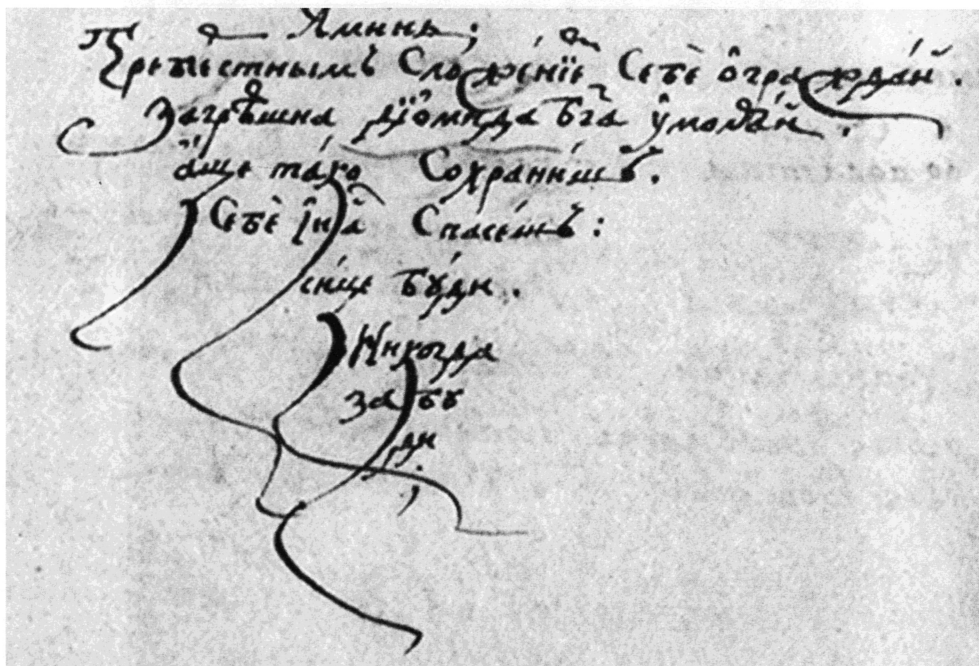 Аминь;
Трепѣстнымъ Сложе́нїе Себѐ ѡ҆гражда́й.
За грѣшна дїѡмида бг҃а ᲂу҆молѧ́й.
а҆́ще та́ко Сохрани́шъ.
Себѐ и҆ на̀ Спасе́шъ:
си́це бу́ди.
Никогда
забꙋ
ди
;